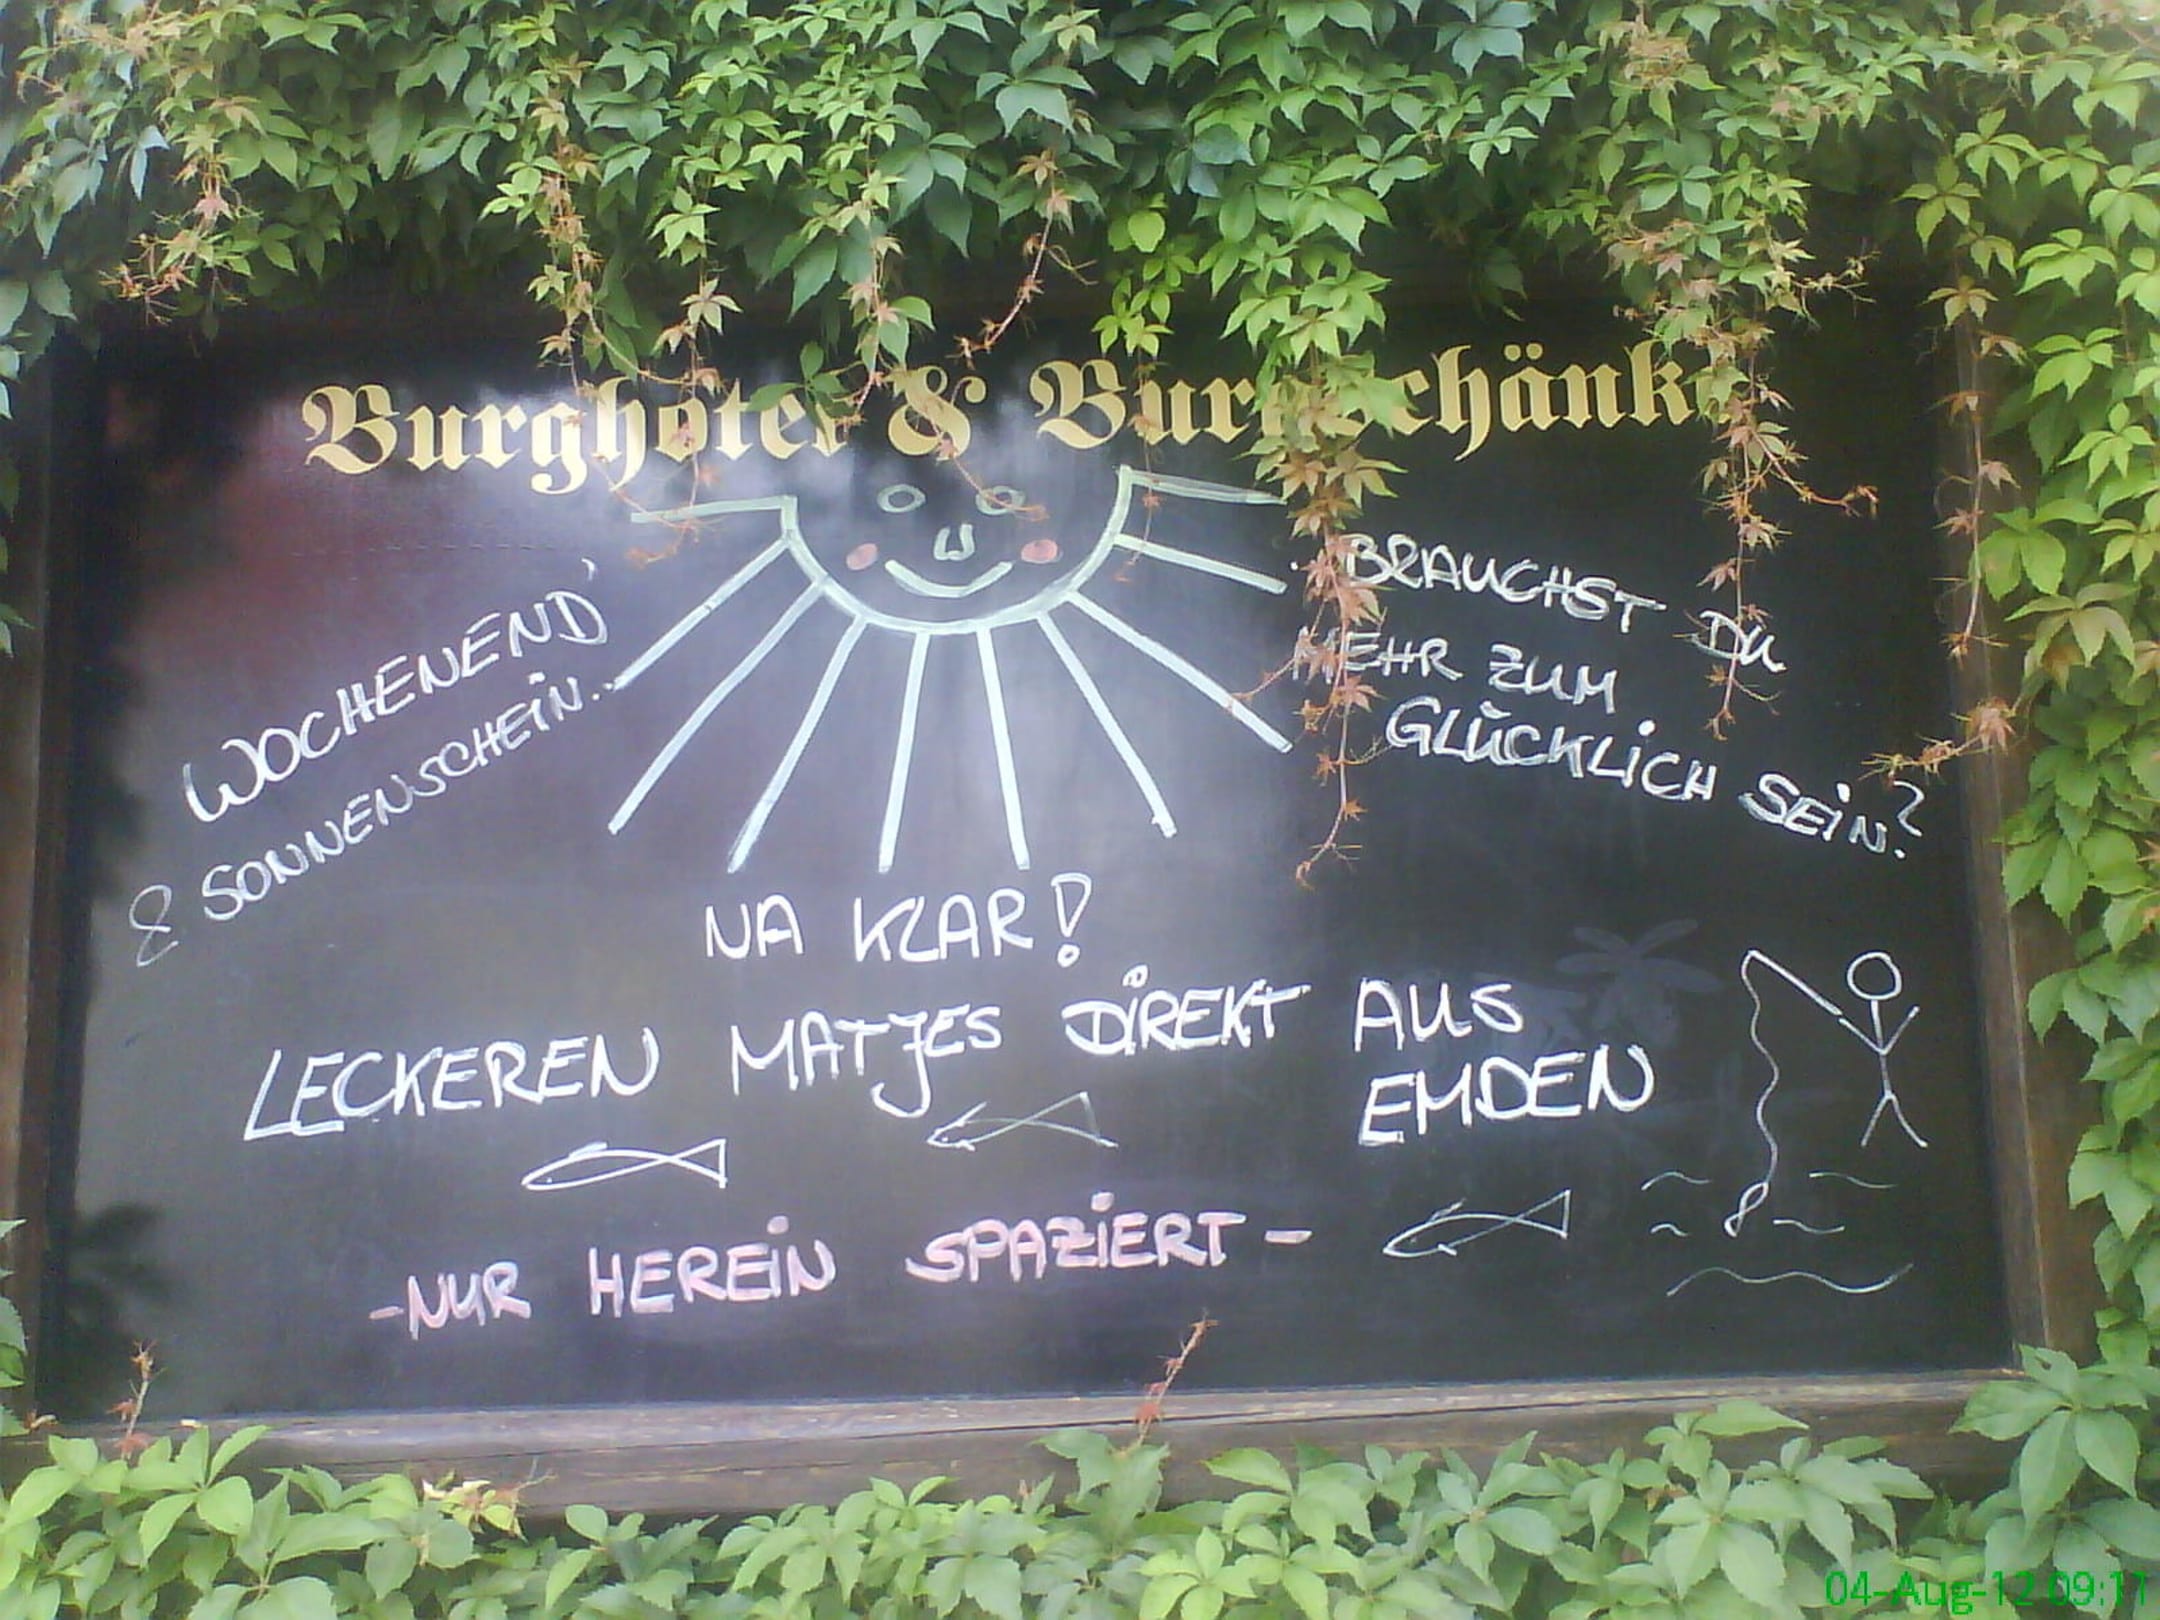 Burghotel & Burgschänke
WOCHENEND'
& SONNENSCHEIN..
BRAUCHST DU
MEHR ZUM
GLÜCKLICH SEIN?
NA KLAR!
LECKEREN MATJES DIREKT AUS
EMDEN
-NUR HEREIN SPAZIERT-
04-Aug-12 09:11